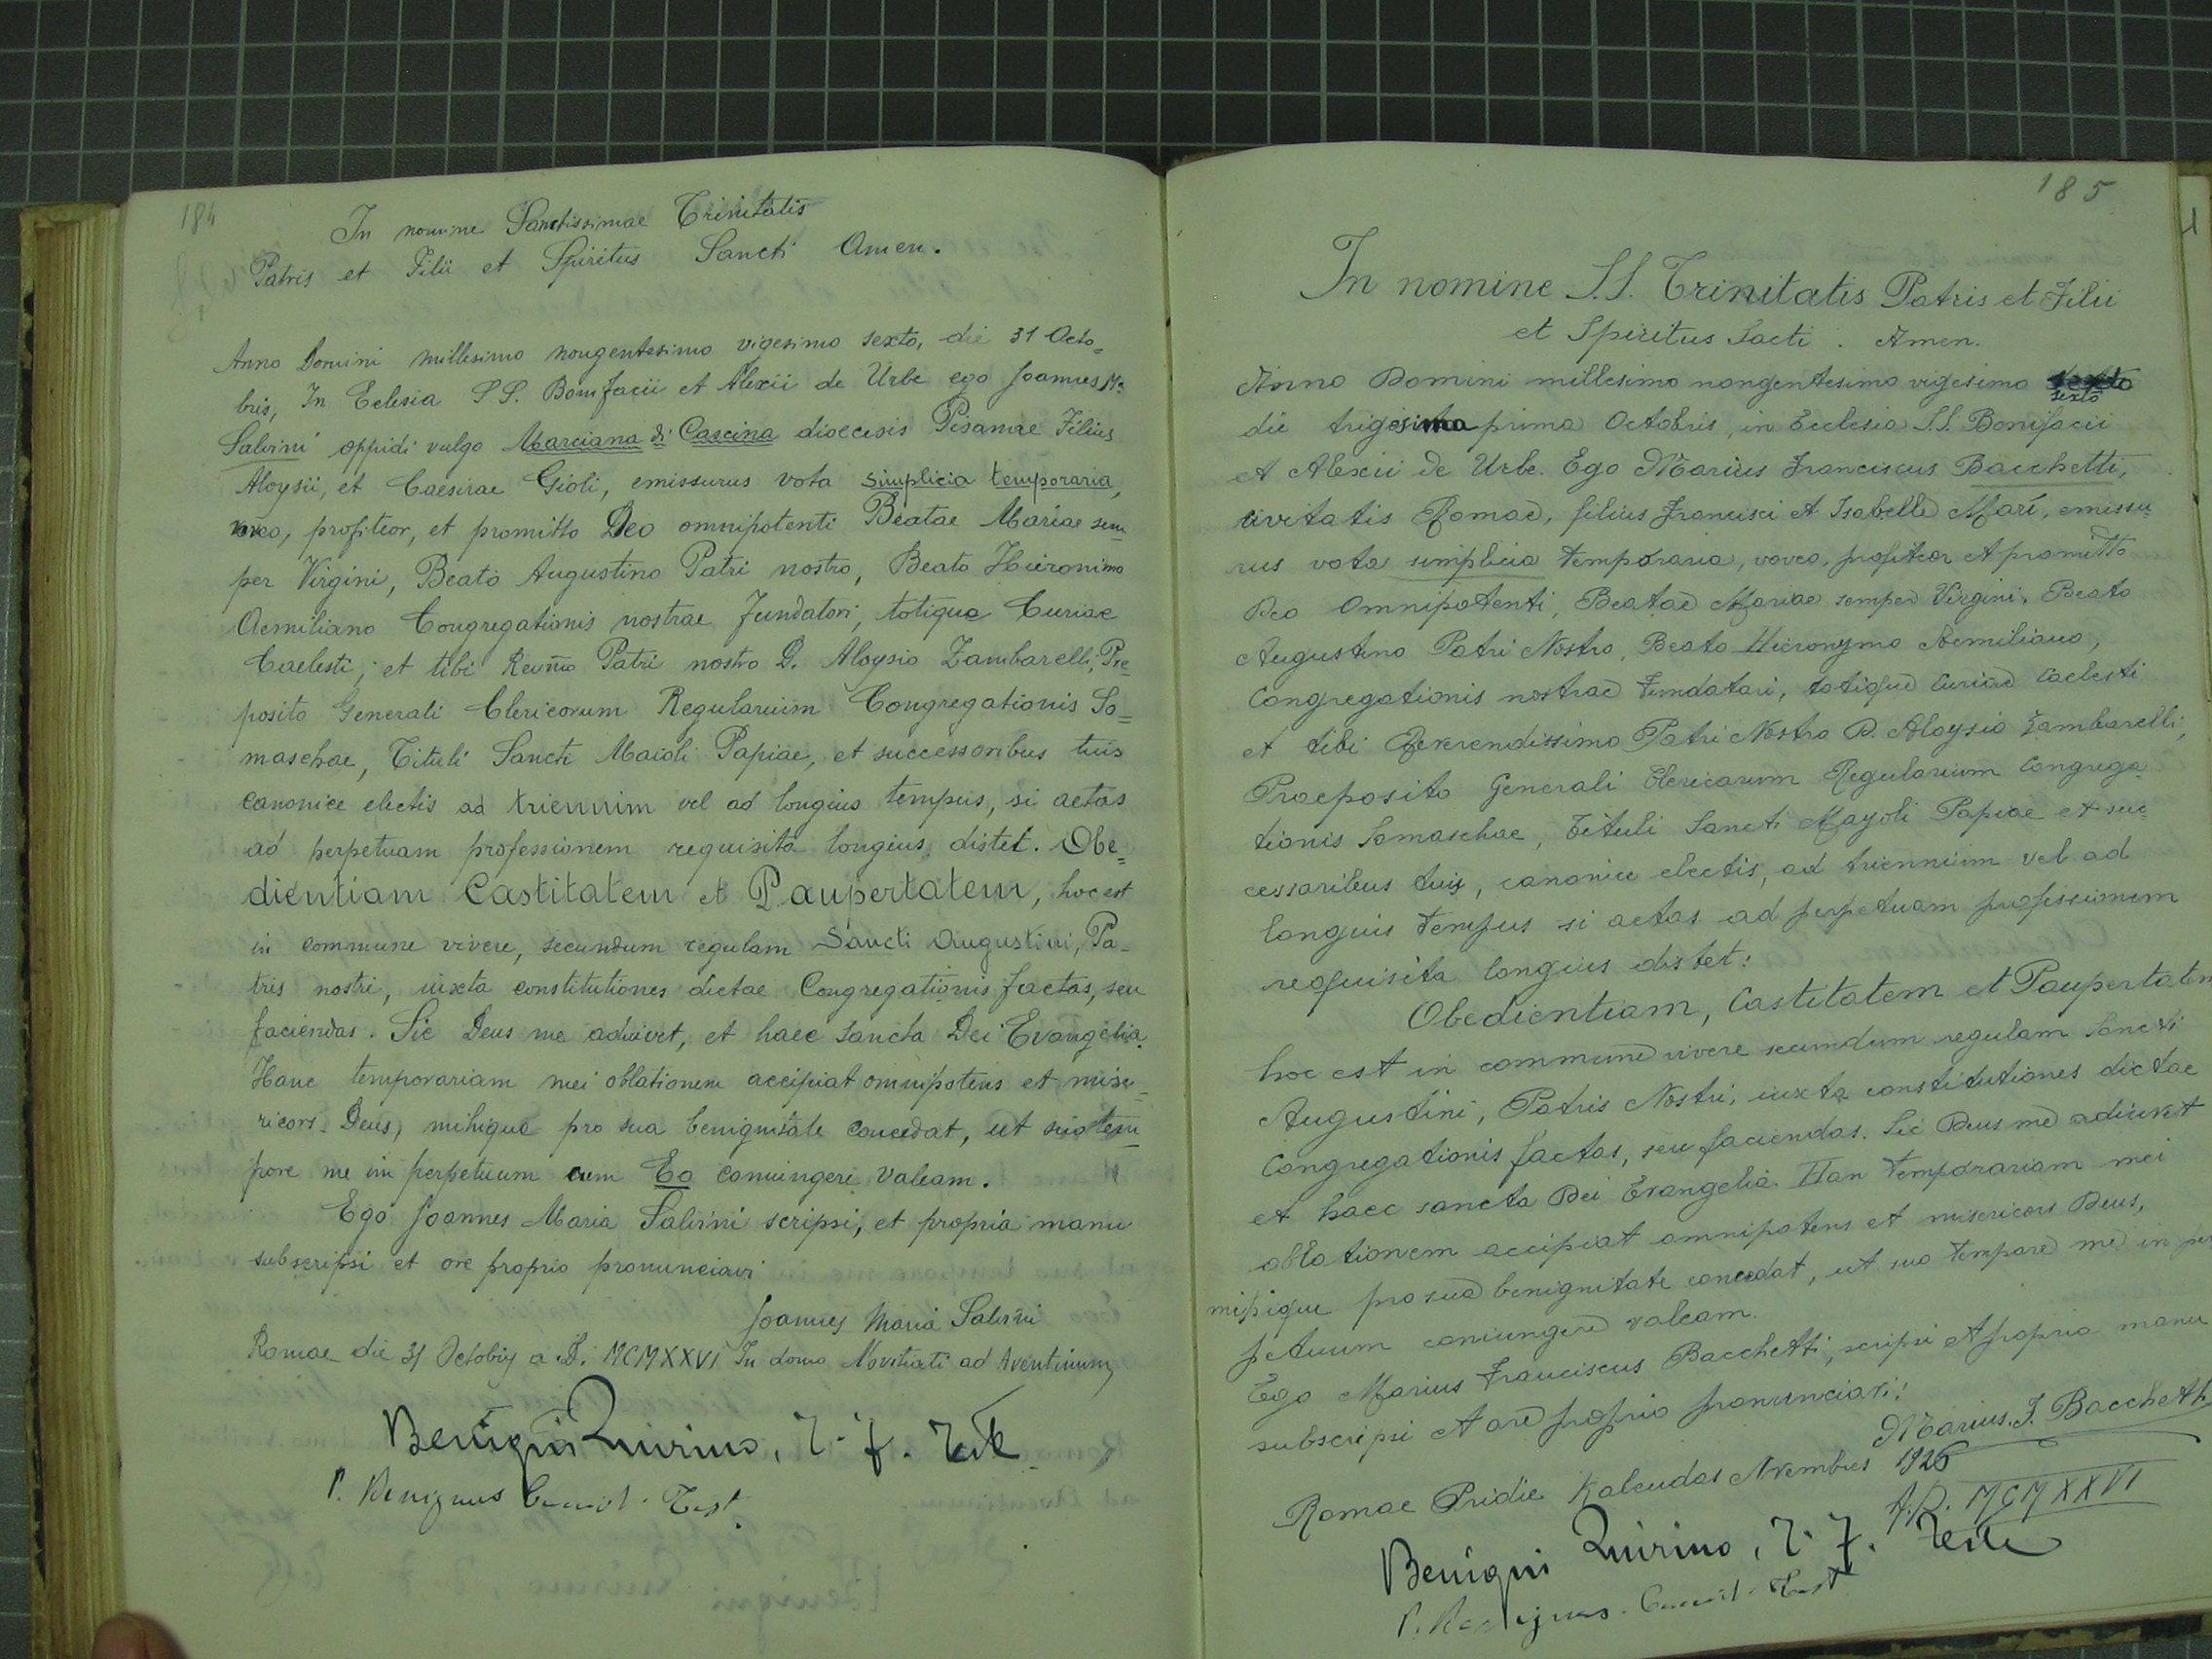 184
In nomine Sanctissimae Trinitatis
Patris et Filii et Spiritus Sancti Amen.
Anno Domini millesimo nongentesimo vigesimo sexto, die 31 Octo=
bris, In Eclesia SS. Bonifacii et Alexii de Urbe ego Joannes Ma
Salvini oppidi vulgo Marciana di Cascina dioecesis Pisanae Filius
Aloysii, et Caesirae Gioli, emissurus vota simplicia temporaria,
voveo, profiteor, et promitto Deo omnipotenti Beatae Mariae sem=
per Virgini, Beato Augustino Patri nostro, Beato Hieronimo
Aemiliano Congregationis nostrae fundatori, totique Curiae
Caelesti; et tibi Revmo Patri nostro D. Aloysio Zambarelli, Pre=
posito Generali Clericorum Regularium Congregationis So=
maschae, Tituli Sancti Maioli Papiae, et successoribus tuis
canonice electis ad triennium vel ad longius tempus, si aetas
ad perpetuam professionem requisita longius distet. Obe=
dientiam Castitatem et Paupertatem, hoc est
in commune vivere, secundum regulam Sancti Augustini, Pa-
tris nostri, iuxta constitutiones dictae Congregationis factas, seu
faciendas. Sic Deus me adiuvet, et haec Sancta Dei Evangelia.
Hanc temporariam mei oblationem accipiat omnipotens et mise-
ricors Deus, mihique pro sua benignitate concedat, ut suo tem=
pore me in perpetuum cum Eo coniungere valeam.
Ego Joannes Maria Salvini scripsi, et propria manu
subscripsi et ore proprio pronunciavi
Joannes Maria Salvini
Romae die 31 Octobris a. D. MCMXXVI In domo Novitiati ad Aventinum
Benigni Quirino, T. f. Teste
P. Benignus Test.
185
In nomine S.S. Trinitatis Patris et Filii
et Spiritus Sacti. Amen.
Anno Domini millesimo nongentesimo vigesimo sexto
sexto
die trigesima prima Octobris, in Ecclesia S.S. Bonifacii
et Alexii de Urbe. Ego Marius Franciscus Bacchetti,
civitatis Romae, filius Francisci et Isabelle Marí, emissu=
rus vota simplicia temporaria, voveo, profiteor et promitto
Deo Omnipotenti, Beatae Mariae semper Virgini, Beato
Augustino Patri Nostro, Beato Hieronymo Aemiliano,
Congregationis nostrae fundatori, totique Curiae Caelesti
et tibi Reverendissimo Patri Nostro D. Aloysio Zambarelli,
Praeposito Generali Clericorum Regularium Congrega=
tionis Somaschae, Tituli Sancti Mayoli Papiae et suc=
cessoribus tuis, canonice electis, ad triennium vel ad
longuis tempus si aetas ad perpetuam professionem
requisita longius distet:
Obedientiam, Castitatem et Paupertatem
hoc est in commune vivere secundum regulam Sancti
Augustini, Patris Nostri, iuxta constitutiones dictae
Congregationis factas, seu faciendas. Sic Deus me adiuvet
et haec sancta Dei Evangelia. Han temporariam mei
oblationem accipiat omnipotens et misericors Deus,
mihique pro sua benignitate concedat, ut suo tempore me in per
petuum coniungere valeam.
Ego Marius Franciscus Bacchetti, scripsi et propria manu
subscripsi et ore proprio pronunciavi:
Marius. F. Bacchetti
Romae Pridie Kalendas Novembres 1926
A.D. MCMXXVI
Benigni Quirino, T. f. Teste
P. Benignus Test